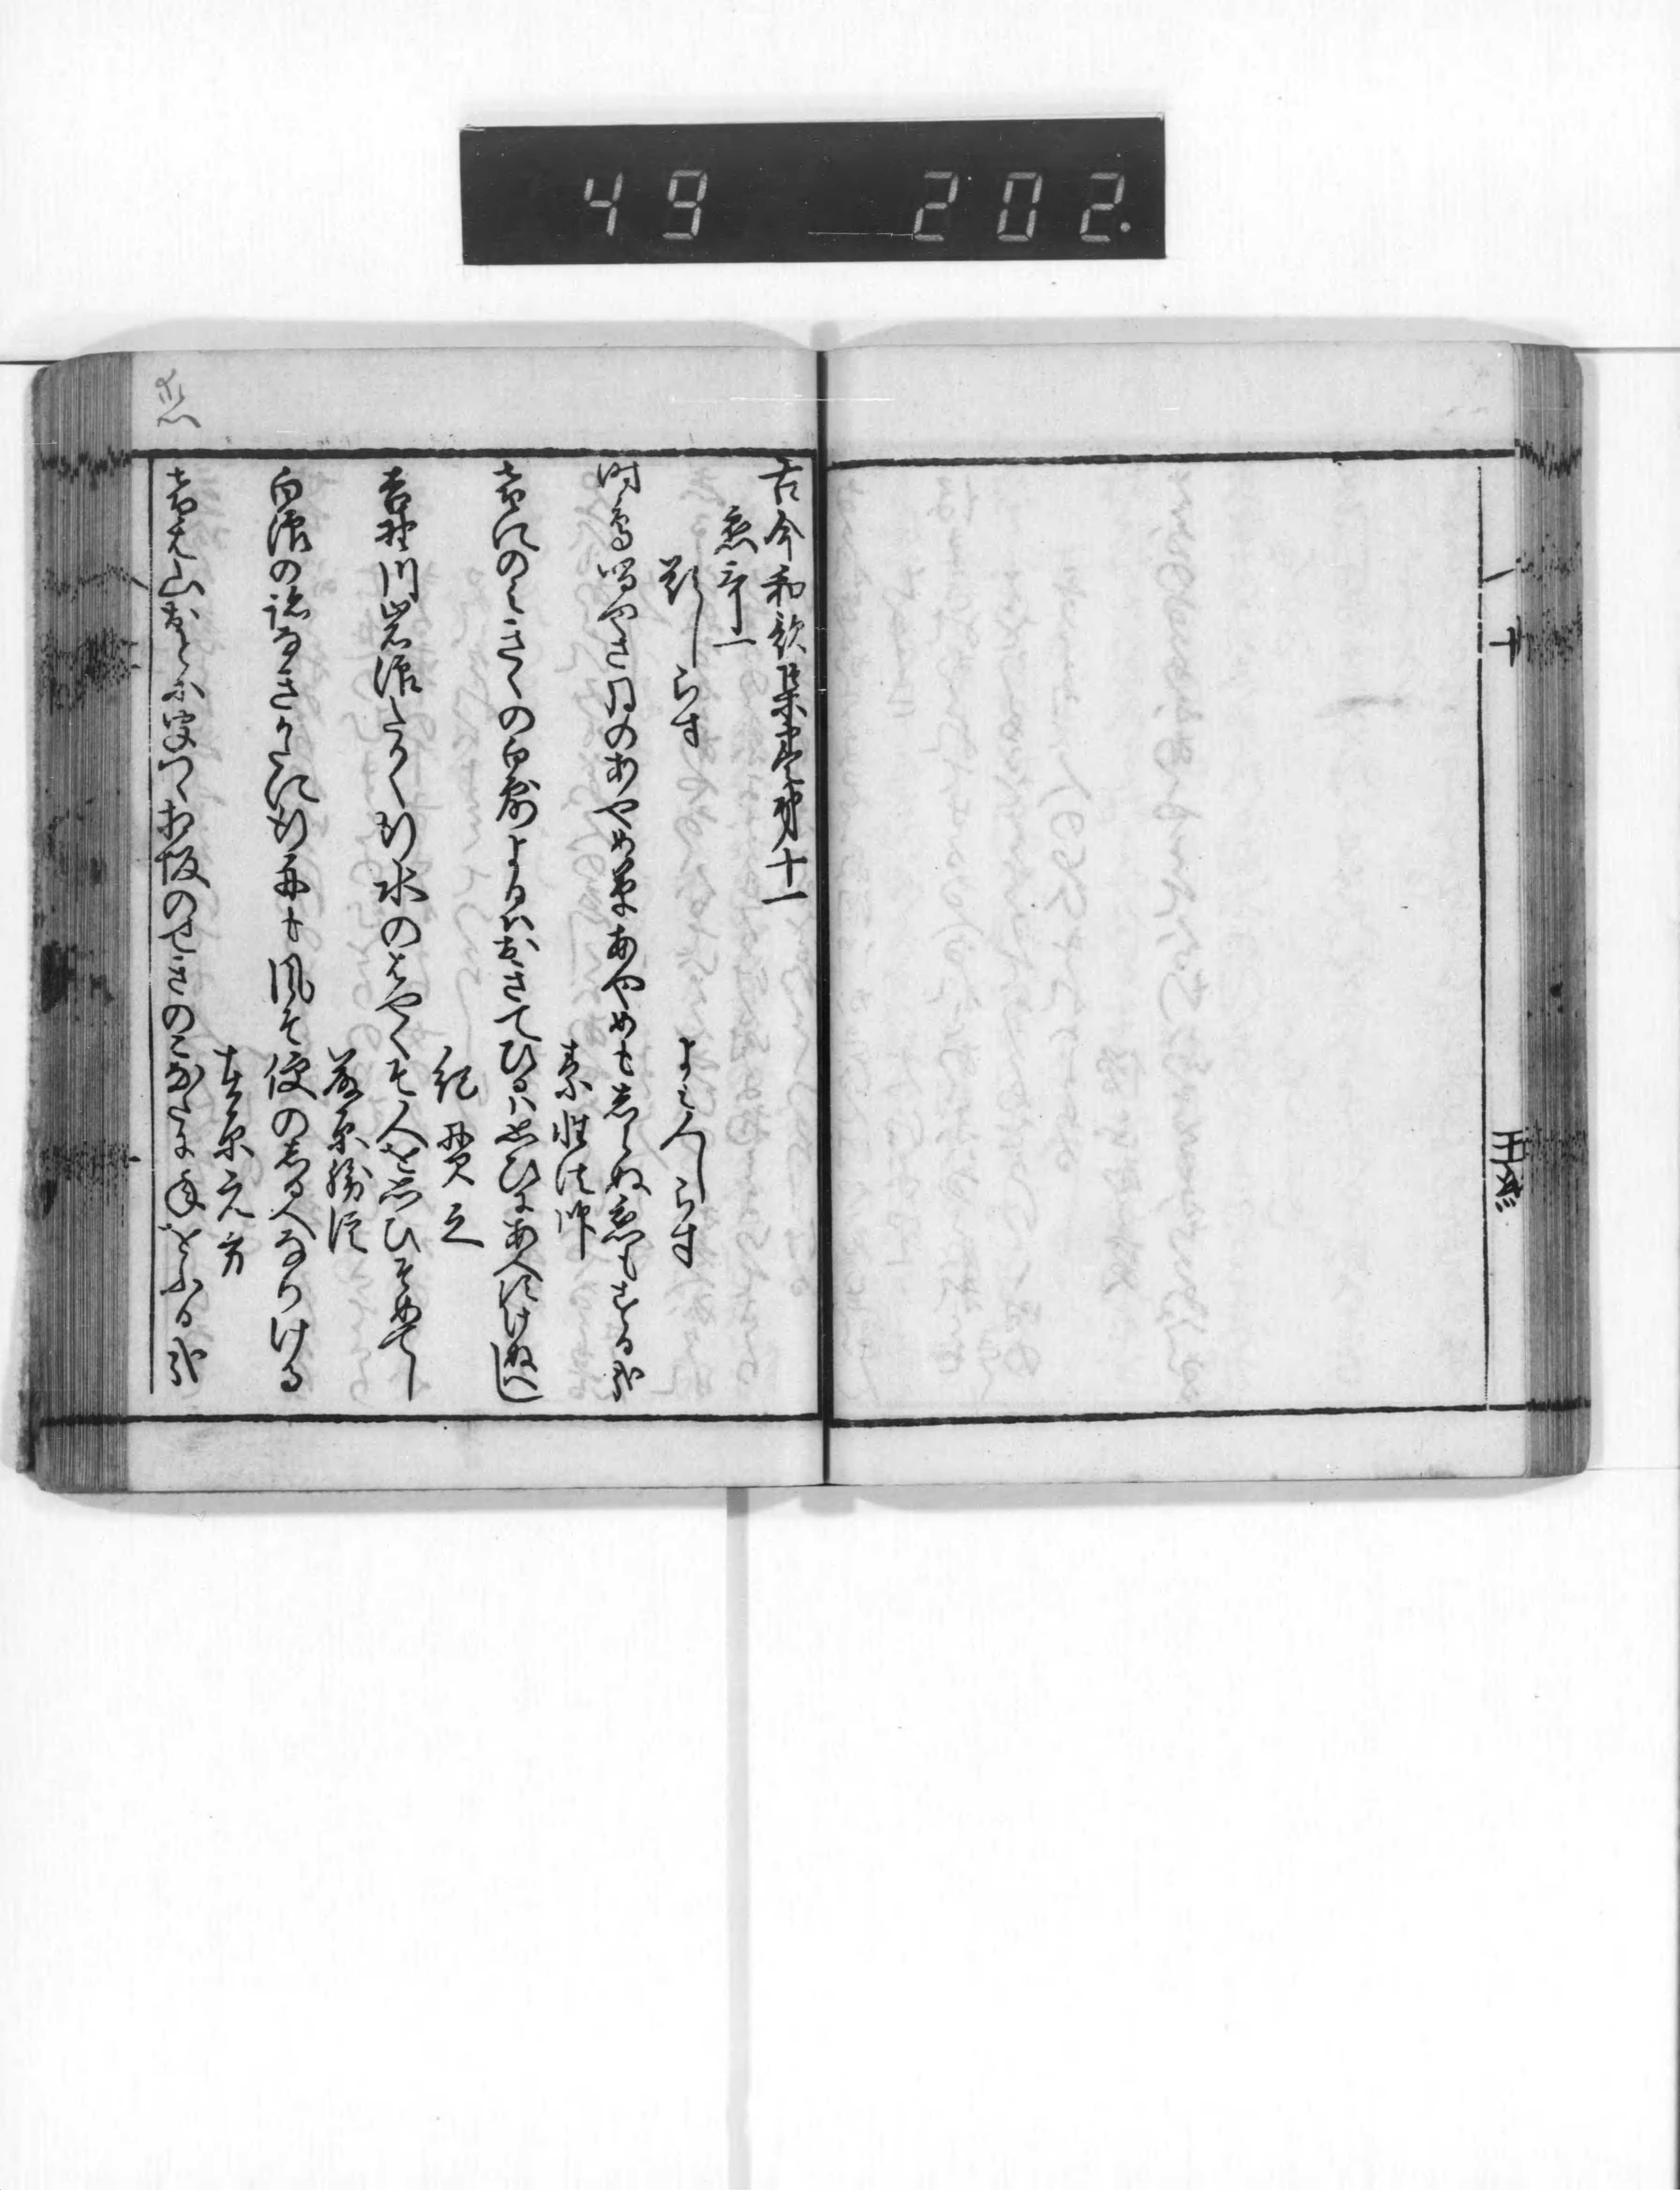 49 202.
古今和歌集巻第十一
恋哥一
題しらす
よみ人しらす
時鳥鳴やさ月のあやめ草あやめもしらぬ恋もする哉
素性法師
音にのみきくの白露よるはおきてひるは思ひにあへすけぬへし
紀貫之
吉野川岩浪たかく行水のはやくそ人を思ひそめてし
藤原勝臣
白浪の跡なきかたに行舟も風そ便のしるへなりける
在原元方
音羽山おとに聞つゝ相坂のせきのこなたに年をふる哉
恋